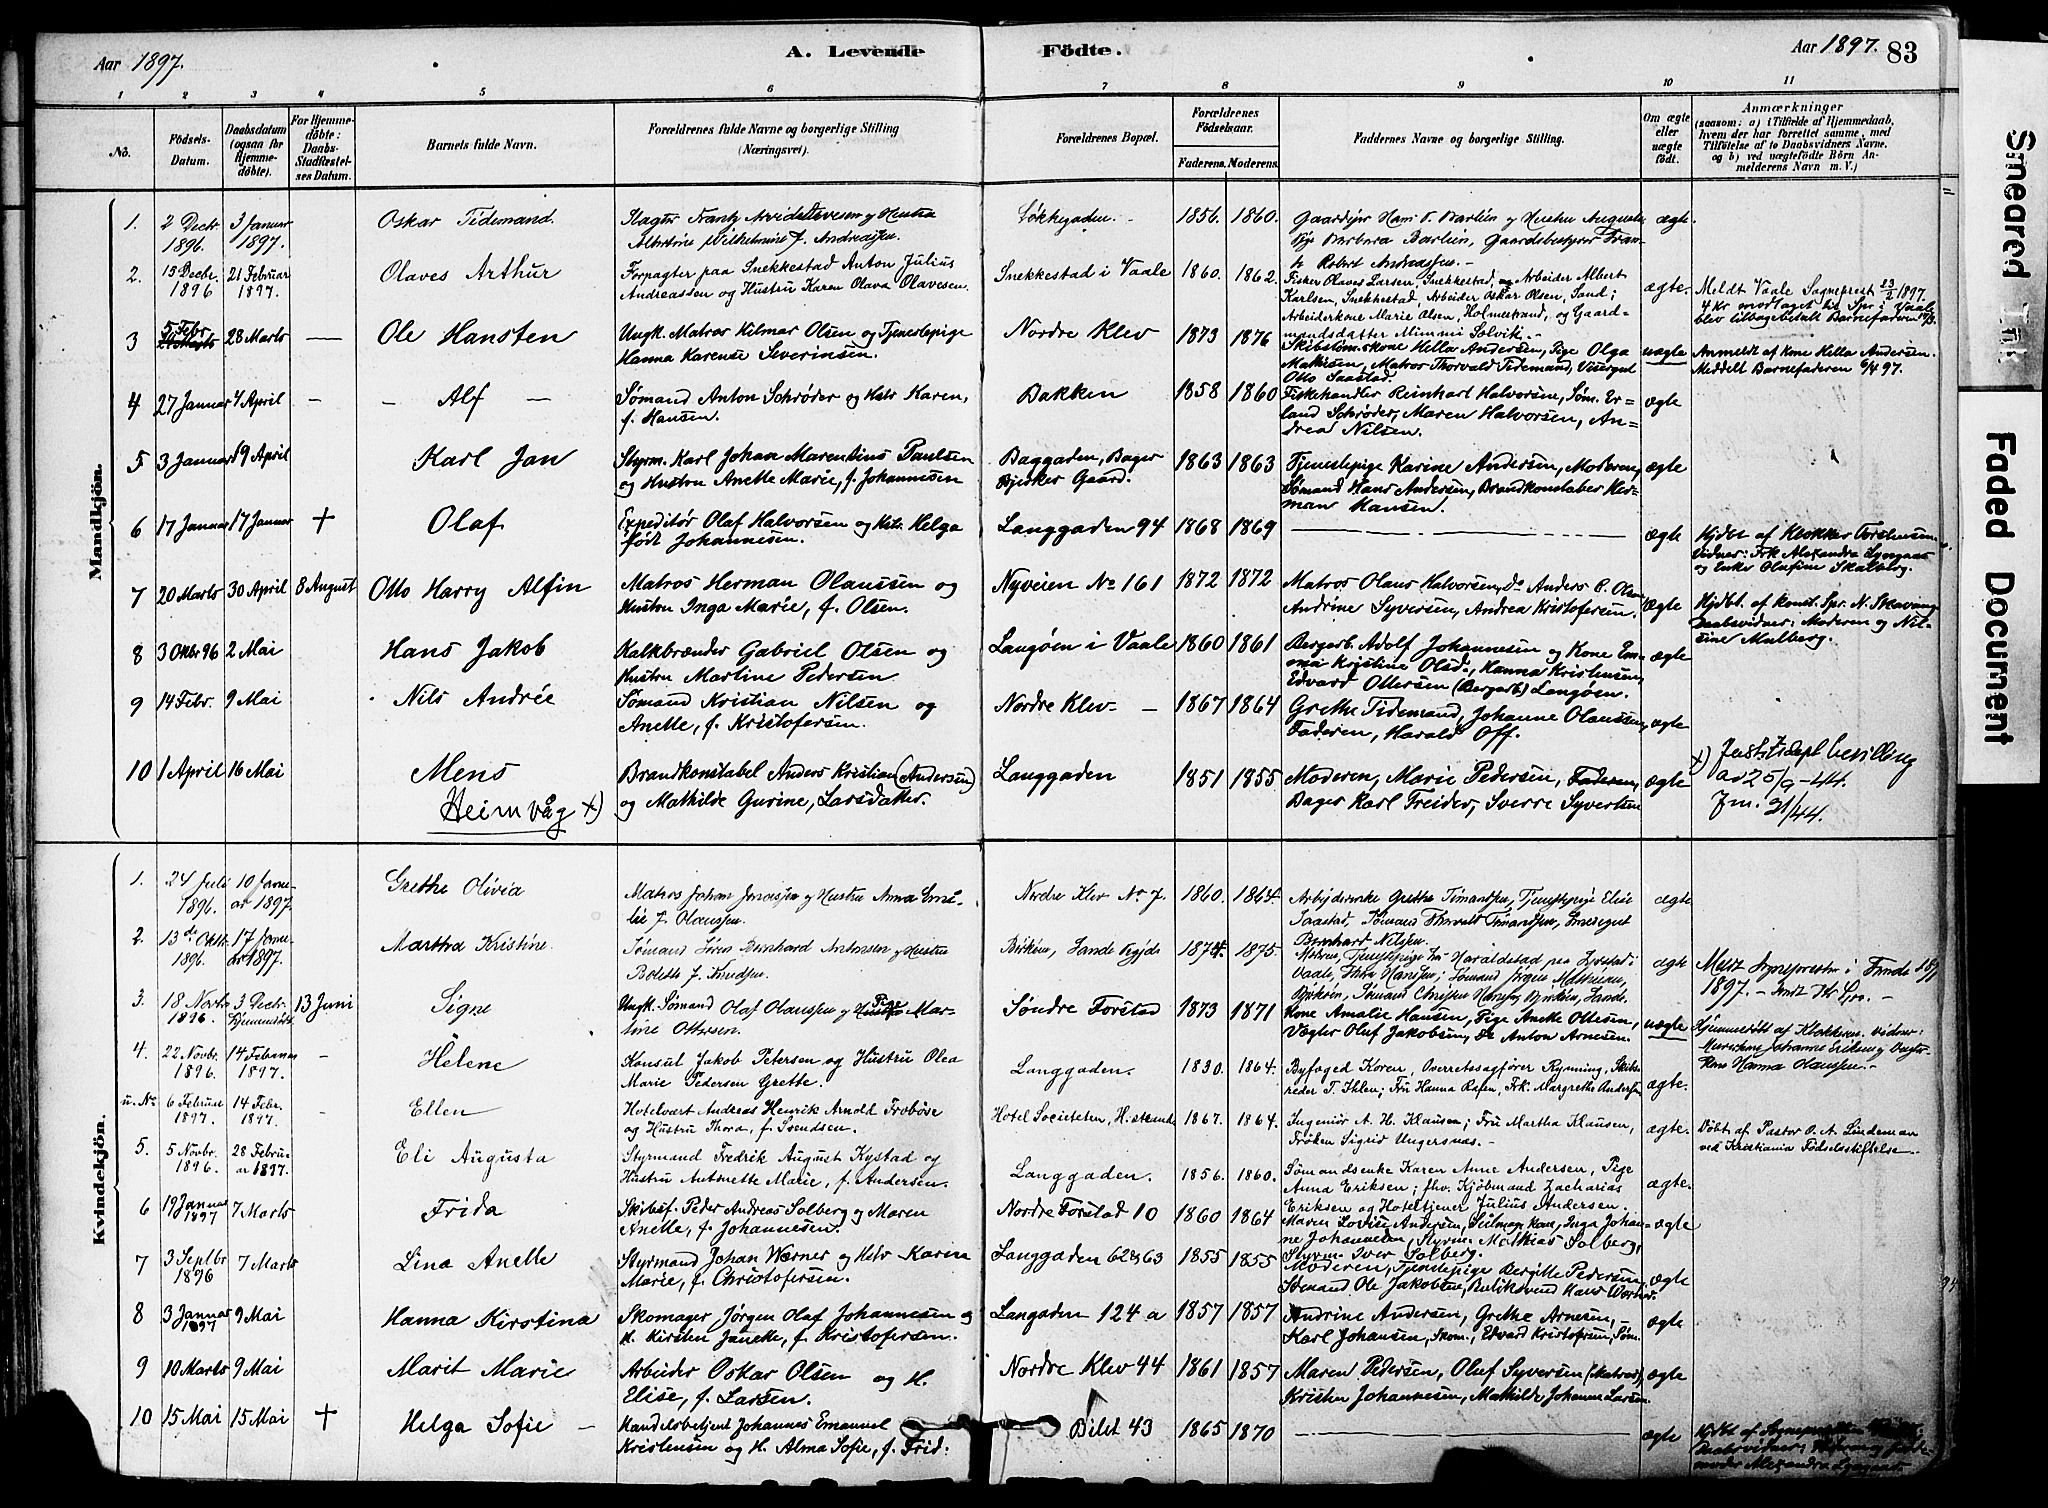 Aar 1897.
A. Levende Födte.
Aar 1897. 83
1 2 3 4 5 6 7 8 9 10 11
No.
Födsels-Datum.
Daabsdatum (ogsaa for Hjemmedöbte).
For Hjemmedöbte: Daabs-Stadfæstelses Datum.
Barnets fulde Navn.
Forældrenes fulde Navne og borgerlige Stilling (Næringsvei).
Forældrenes Bopæl.
Forældrenes Födselsaar.
Faderens. Moderens.
Faddernes Navne og borgerlige Stilling.
Om ægte eller uægte födt.
Anmærkninger
(saasom: a) i Tilfælde af Hjemmedaab,
hvem der har forrettet samme, med
Tilföielse af to Daabsvidners Navne,
og b) ved uægtefödte Börn Anmelderens Navn m. V.)
Mandkjön.
1. 2 Decbr 1896. 3 Januar 1897. Oskar Tidemand. Hustru Wilhelmine f. Andreassen. Løkkegaden. 1856. 1860. Barbara Barlien, Robert Andreassen. ægte.
2. 15 Decbr. 1896 21 Februar 1897. Olaves Arthur
Forpagter paa Snekkestad Anton Julius
Andreassen og Hustru Karen Olava Olavesen.
Snekkestad i Vaale 1860. 1862.
Fisker Olaves Larsen, Snekkestad, og Arbeider Albert
Karlsen, Snekkestad, Arbeider Oskar Olsen, Sand;
Arbeiderkone Marie Olsen, Holmestrand, og Gaard-
mandsdatter Mimmi Solvik.
ægte. Meldt Vaale Sogneprest 23/2 1897.
3 5 Febr 28 Marts — Ole Hansten
Ungk. Matros Hilmar Olsen og Tjenestepige
Hanna Karense Severinsen.
Nordre Klev 1873 1876
Skibstøm.skone Hella Andersen, Pige Olga
Mathisen, Matros Thorvald Tidemand, Visergut
Otto Saastad.
uægte Anmeldt af kone Hella Andersen.
Meddelt Barnefaderen 6/4 97.
4 27 Januar 4 April — — Alf —
Sømand Anton Schrøder og Hstr Karen,
f. Hansen.
Bakken 1858 1860
Fiskehandler Reinhart Halvorsen, Søm. Er-
land Schrøder, Maren Halvorsen, An-
drea Nilsen.
ægte
5 3 Januar 19 April Karl Jan
Styrm. Karl Johan Marentius Paulsen
og Hustru Anette Marie, f. Johannesen
Baggaden, Bager
Bjerkes Gaard. 1863 1863
Tjenestepige Karine Andersen, Moderen,
Sømand Hans Andersen, Brandkonstabel Her-
man Hansen.
ægte
6 17 Januar 17 Januar + Olaf
Expeditör Olaf Halvorsen og Hstr. Helga
født Johannesen.
Langgaden 94 1868 1869 ægte
Hjdbt af Klokker Torstensen
Vidner: Frk Alexandra Lysgaar
og Enke Olafine Skalberg.
7 20 Marts 30 April 8 August Otto Harry Alfin
Matros Herman Olaussen og
Hustru Inga Marie, f. Olsen.
Nyveien No 161 1872 1872
Matros Olaus Halvorsen, Do Anders P. Olsen
Andrine Syversen, Andrea Kristofersen.
ægte Hjdbt. af konst. Spr. N. Skavang
Daabsvidner: Moderen og Nil-
sine Mulberg.
8 3 Oktbr 96 2 Mai Hans Jakob
Kalkbrænder Gabriel Olsen og
Hustru Martine Pedersen.
Langøen i Vaale 1860 1861
Bergarb. Adolf Johannesen og Kone Em-
ma Kristine Olsd., Hanna Kristensen,
Edvard Ottersen (Bergarb.) Langøen.
ægte
9 14 Febr. 9 Mai Nils Andrée
Sømand Kristian Nilsen og
Anette, f. Kristofersen.
Nordre Klev — 1867 1864
Grethe Tidemand, Johanne Olaussen,
Faderen, Harald Off.
ægte
10 1 April 16 Mai Mens
Heimvåg x)
Brandkonstabel Anders Kristian (Andersen)
og Mathilde Gurine, Larsdatter.
Langgaden 1851 1855
Moderen, Marie Pedersen, Faderen,
Bager Karl Freider, Sverre Syvertsen
ægte x) Just.s.dept. bevilling
av 25/9-44.
Jm. 21/44.
Kvindekjön.
1. 24 Juli 1896. 10 Janu-ar 1897. Grethe Olivia
Matros Johan Jonassen og Hustru Anna Emi-
lie f. Olaussen.
Nordre Klev No 7. 1860. 1864.
Grethe Timandsen, Tjenestepige Elise
Saastad, Sømand Thorvald Timandsen,
Bernhard Nilsen.
ægte
2. 13de Oktbr. 1896. 17 Janu-ar 1897. Martha Kristine.
Sømand Bernhard Antonsen og Hustru
Bolette f. Knudsen.
Sande 1874. 1875.
ægte 1897.
3. 18 Novbr 1896. 3 Decbr. Hjemmedøbt. 13 Juni Signe
Ungk. Sømand Olaf Olaussen og Pige Mar-
tine Ottersen.
Søndre Forstad 1873 1871
Kone Amalie Hansen, Pige Anette Ottesen,
Vægter Oluf Jakobsen, Do Anton Arnesen.
uægte Hjemmedøbt af Klokkeren, Vidner:
Johanne Eriksen og
Kone Hanna Olaussen.
4. 22 Novbr. 1896. 14 Februar 1897. - Helene
Konsul Jakob Petersen og Hustru Olea
Marie Pedersen Grette.
Langgaden. 1830. 1864.
Byfoged Koren, Overretssagfører Rynning, Skibs-
reder T. Ihlen; Fru Hanna Rafen, Frk. Margrethe Andersen
ægte.
u. No 6 Februar 1897. 14 Febr. 1897. - Ellen
Hotelvært Andreas Henrik Arnold Frobøse
og Hustru Thora, f. Svendsen.
Hotel Societeten, H.strand 1867. 1864.
Ingeniør A. H. Klausen; Fru Martha Klausen,
Frøken Sigrid Ungersnæs.
ægte. Døbt af Pastor O. A. Lindeman
ved Kristiania Fødselsstiftelse.
5. 5 Novbr. 1896. 28 Februar 1897. Eli Augusta
Styrmand Fredrik August Kystad og
Hustru Antonette Marie, f. Andersen.
Langgaden. 1856. 1860.
Sømandsenke Karen Anne Andersen, Pige
Anna Eriksen; fhv. Kjøbmand Zacharias
Eriksen og Hoteltjener Julius Andersen.
ægte.
6 19 Januar 1897 7 Marts Frida
Skibsf. Peder Andreas Solberg og Maren
Anette, f. Johannesen.
Nordre Forstad 10 1860 1864
Maren Lovise Andersen, Seilmag. Kone, Inga Johan-
ne Johannesen, Styrm. Mathias Solberg,
Styrm. Iver Solberg.
ægte
7 3 Septbr 1896 7 Marts Lina Anette
Styrmand Johan Wærner og Hstr Karine
Marie, f. Christofersen.
Langgaden 62 & 63 1855 1855
Moderen, Tjenestepige Bergitte Pedersen,
Sømand Ole Jakobsen, Butiksvend Hans Wærner.
ægte
8 3 Januar 1897 9 Mai Hanna Kirstina
Skomager Jørgen Olaf Johannesen og
H. Kirsten Janette, f. Kristofersen.
Langaden 124 a 1857 1857
Andrine Andersen, Grethe Arnesen,
Karl Johansen, Skom., Edvard Kristofersen, Søm.
ægte
9 10 Marts 9 Mai Marit Marie
Arbeider Oskar Olsen og H.
Elise, f. Larsen.
Nordre Klev 44 1861 1857
Maren Pedersen, Oluf Syversen (Matros),
Kristen Johannesen, Mathilde Johanne Larsen
ægte
10 15 Mai 15 Mai + Helga Sofie —
Handelsbetjent Johannes Emanuel
Kristensen og H. Alma Sofie, f. Frid:
Bilet 43 1865 1870 ægte
Hjdbt af Sogneprest
Daabsvidner:
moder Alexandra Lysgaar
Smeared Ink
Faded Document